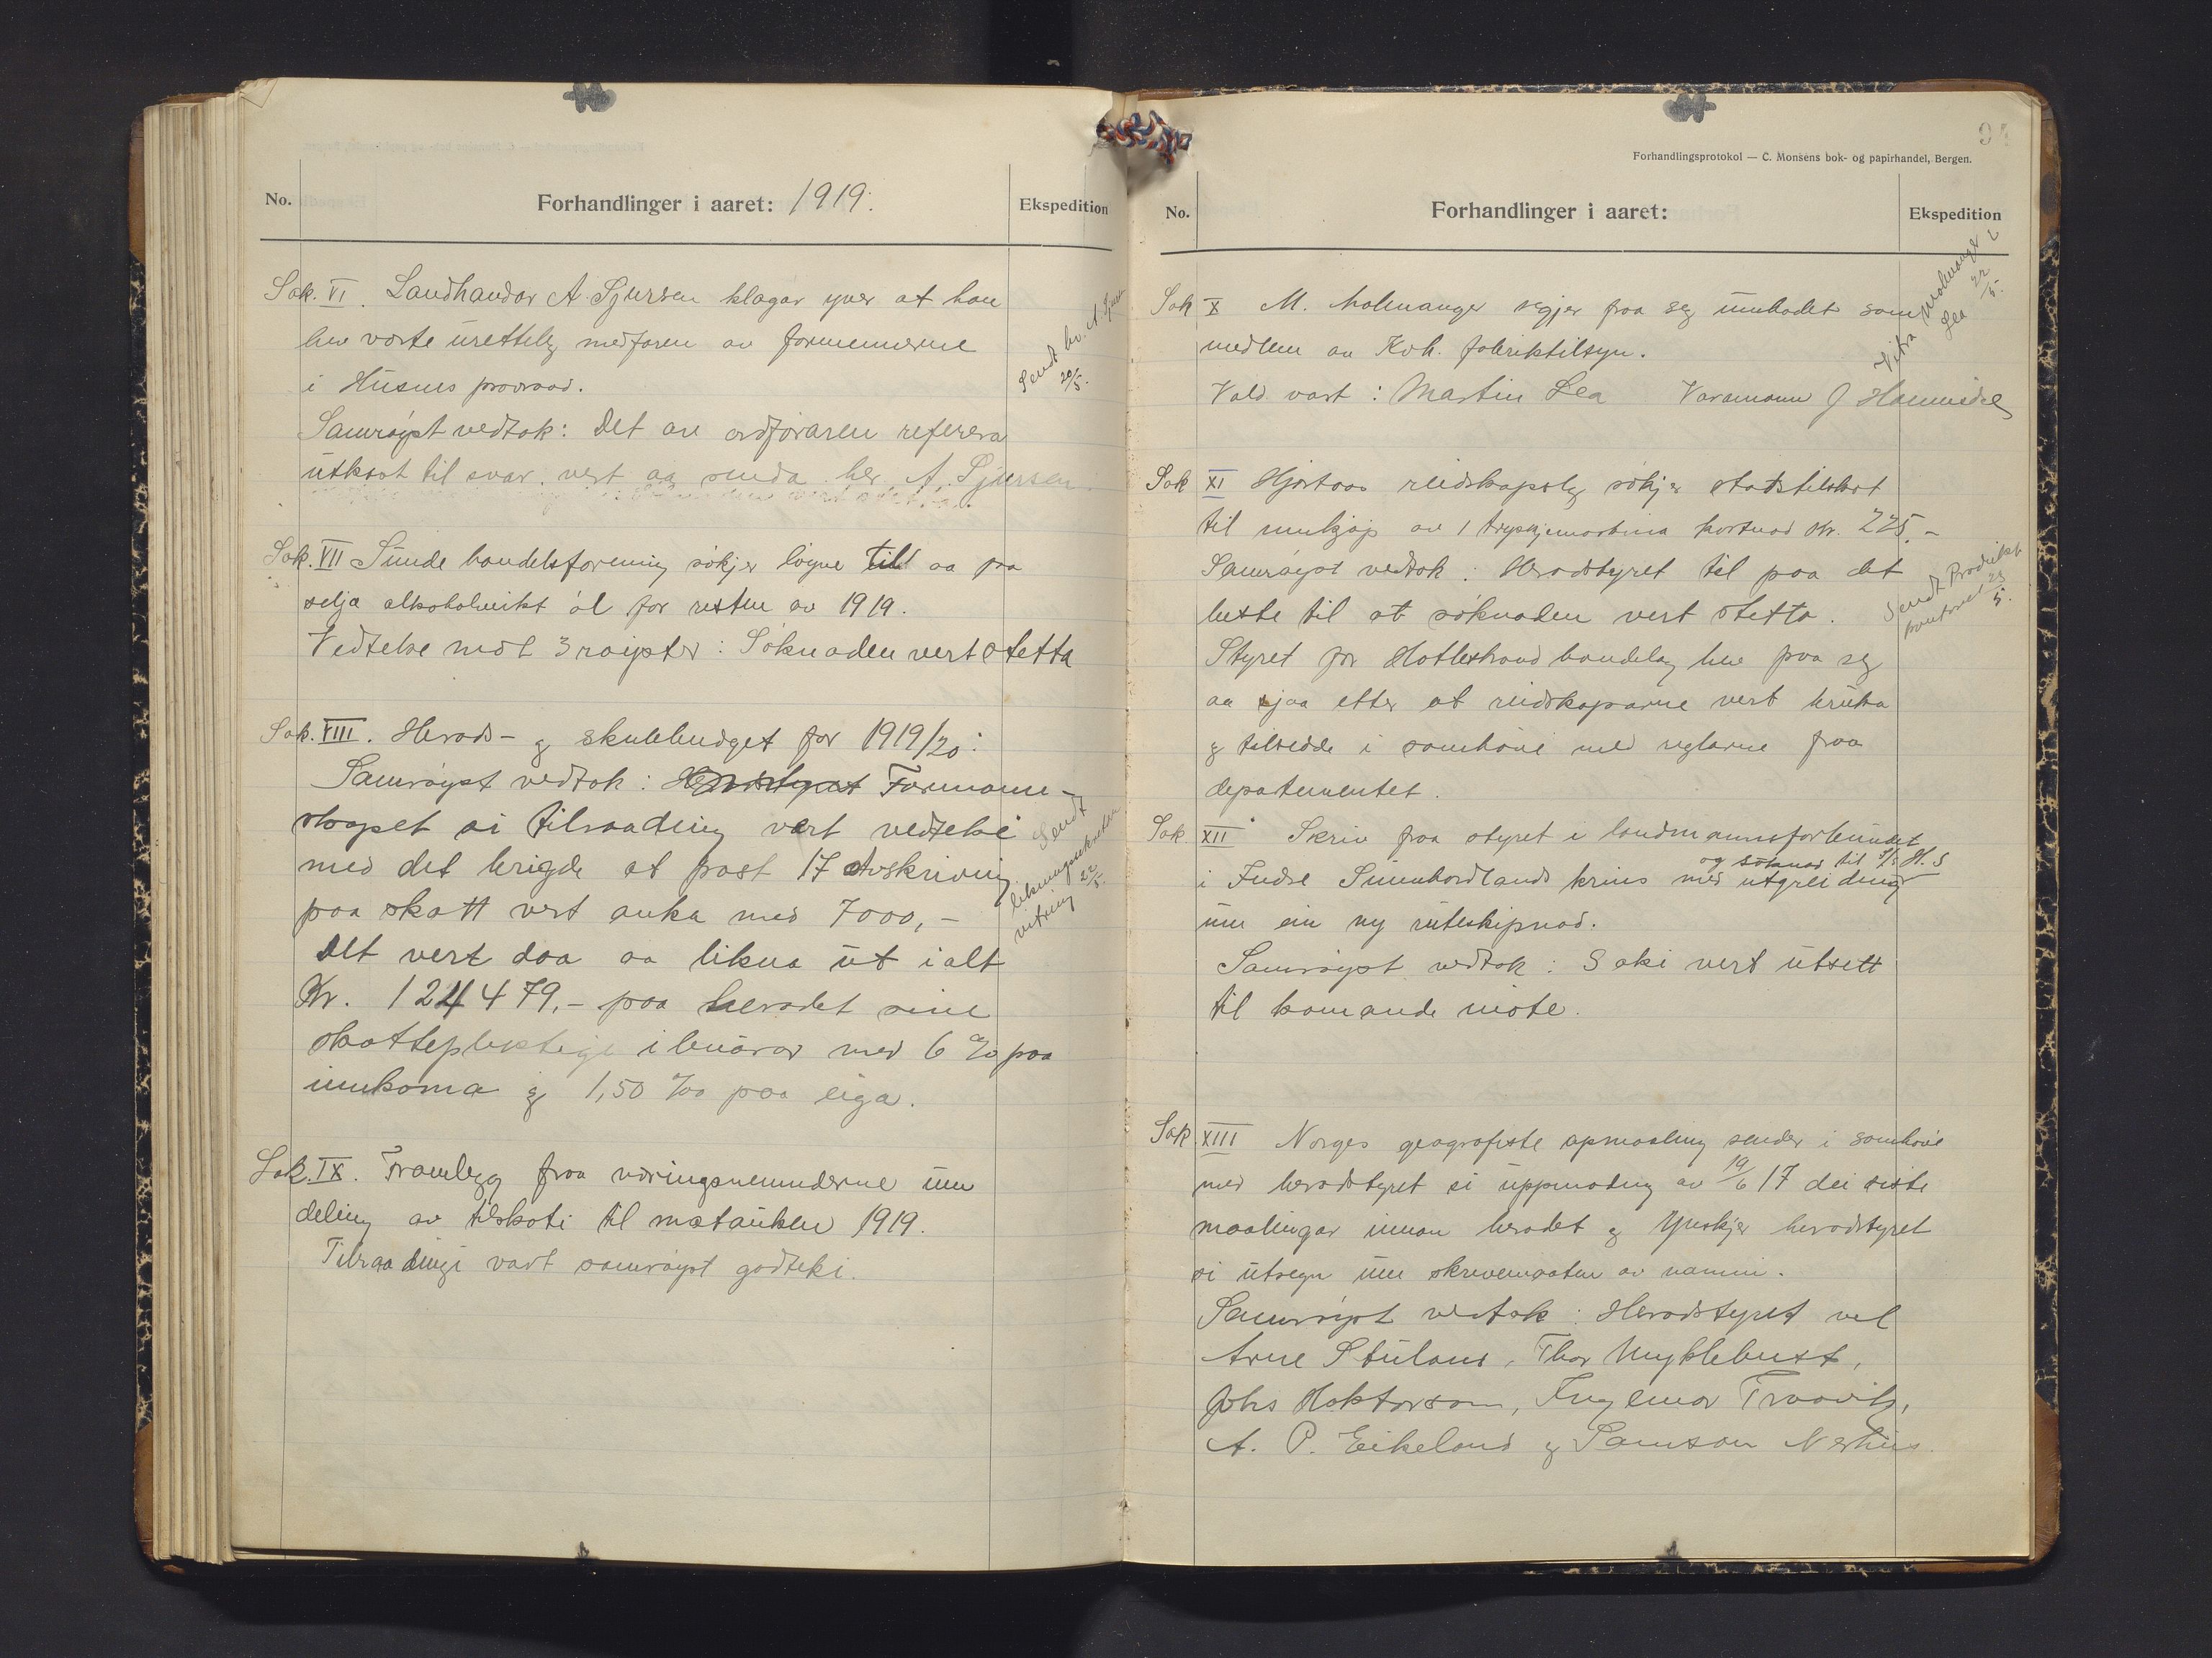 No.
Forhandlinger i aaret: 1919.
Ekspedition
Sak. VI. Landhandar A. Sjursen klagar yver at han
hev vorte uretteleg medfaren av formennerne
i Husnes provraad.
Samrøyst vedtok: Det av ordføraren refererа
utkast til svar vert aa senda hr. A. Sjursen.
Sendt hr. A. Sjursen
20/5.
Sak. VII Sunde handelsforening søkjer løyve til aa faa
selja alkoholsvikt øl for resten av 1919.
Vedteke mot 3 røyster: Søknaden vert stetta
Sak. VIII. Herads- og skulebudget for 1919/20:
Samrøyst vedtok: Heradstyret Formann-
skapet si tilraading vert vedteki
med det brigde at post 17 Avskriving
paa skatt vert auka med 7000,-
Det vert daa aa likna ut ialt
Kr. 124479,- paa heradet sine
skattepliktige ibuarar med 6 % paa
innkoma og 1,50 ‰ paa eiga.
Sendt
likningsnemnden
vitring 22/5.
Sak. IX. Framlegg fraa næringsnemnderne um
deling av tilskoti til matauken 1919.
Tilraadingi vart samrøyst godteki.
94
Forhandlingsprotokol — C. Monsens bok- og papirhandel, Bergen.
No.
Forhandlinger i aaret:
Ekspedition
Sak X M. Malmanger segjer fraa seg umbodet som
medlem av Kvh. fabriktilsyn.
Vald vart: Martin Lea Varamann J Hammedal
Vitra Malmanger &
Lea 22/5.
Sak XI Hjortaas reidskapslag søkjer statstilskot
til innkjøp av 1 kostnad Kr. 225.-
Samrøyst vedtok: Heradstyret til paa det
beste til at søknaden vert stetta.
Styret for Hatlestrand bondelag hev paa seg
aa sjaa etter at reidskaparne vert bruka
og talsedde i samhøve med reglarne fraa
departementet.
Sendt Produkt
kontoret 23/5.
Sak XII Skriv fraa styret i landmannsforbundet
i Indre Sunnhordlands krins med utgreiding
og søknad til H. S
um ein ny ruteskipnad.
Samrøyst vedtok: Saki vert utsett
til komande møte.
Sak XIII Norges geografiske opmaaling sender i samhøve
med heradstyret si uppmoding av 19/6 17 dei siste
maalingar innan heradet og ynskjer heradstyret
si utsegn um skrivemaaten av namni.
Samrøyst vedtok: Heradstyret vel
Arne Stuland, Thor Myklebust,
Johs Haktorson, Ingemar Traavik,
A. P. Eikeland og Samson Neshus